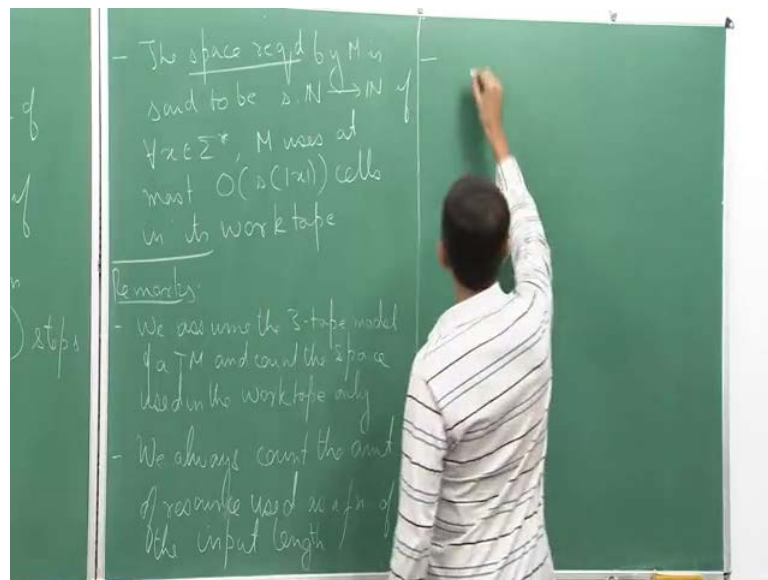 of
if
n
) steps
- The space reqd by M is
said to be s: N → N if
∀x ∈ Σ*, M uses at
most O(s(|x|)) cells
in its worktape
Remarks:
- We assume the 3-tape model
of a TM and count the space
used in the worktape only
- We always count the amt
of resource used as a fn of
the input length
-